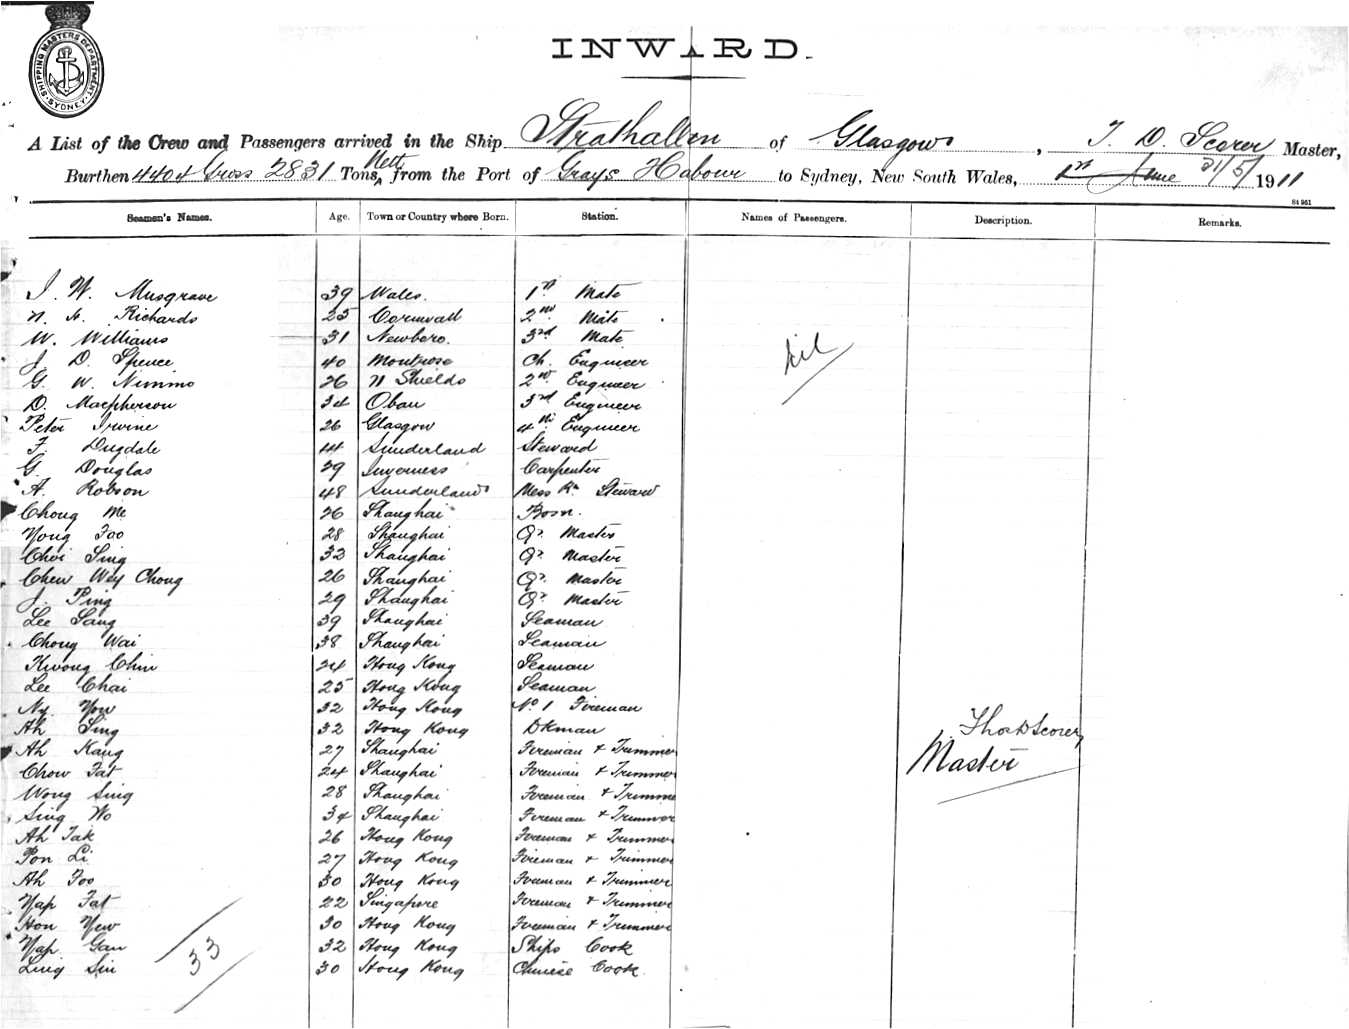 SHIPPING MASTERS DEPARTMENT
SYDNEY
INWARD.
A List of the Crew and Passengers arrived in the Ship Strathallen of Glasgow, T. D. Scorer Master,
Burthen 4404 Gross 2831 Tons Nett from the Port of Grays Habour to Sydney, New South Wales, 1st June 31/5/1911
84 961
Seamen's Names. Age. Town or Country where Born. Station. Names of Passengers. Description. Remarks.
J. W. Musgrave 39 Wales. 1st Mate
Richards 25 Cornwall 2nd Mate
W. Williams 31 Newboro. 3rd Mate
nil
J. D. Spence 40 Montrose Ch. Engineer
G. W. Nimmo 26 N Shields 2nd Engineer
D. Macpherson 34 Oban 3rd Engineer
Peter Irvine 26 Glasgow 4th Engineer
F. Dugdale 44 Sunderland Steward
G. Douglas 29 Inverness Carpenter
A. Robson 48 Sunderland Mess Rm Steward
Chong Me 26 Shanghai Bosn.
Yong Foo 28 Shanghai Qr. Master
Choi Sing 32 Shanghai Qr. Master
Chew Wey Chong 26 Shanghai Qr. Master
J. Ping 29 Shanghai Qr. Master
Lee Sang 39 Shanghai Seaman
Chong Wai 38 Shanghai Seaman
Kwong Chin 24 Hong Kong Seaman
Lee Chai 25 Hong Kong Seaman
Ny You 32 Hong Kong No 1 Fireman
Ah Sing 32 Hong Kong Dkman
Thos D Scorer
Ah Kang 27 Shanghai Fireman + Trimmer
Master
Chow Fat 24 Shanghai Fireman + Trimmer
Wong Sing 28 Shanghai Fireman + Trimme
Sing Wo 34 Shanghai Fireman + Trimmer
Ah Tak 26 Hong Kong Fireman + Trimmer
Pon Li 27 Hong Kong Fireman + Trimmer
Ah Foo 30 Hong Kong Fireman + Trimmer
Yap Fat 22 Singapore Fireman + Trimmer
Hon Yew 30 Hong Kong Fireman + Trimmer
Yap Gan 32 Hong Kong Ships Cook
Ling Sin 30 Hong Kong Chinese Cook
33